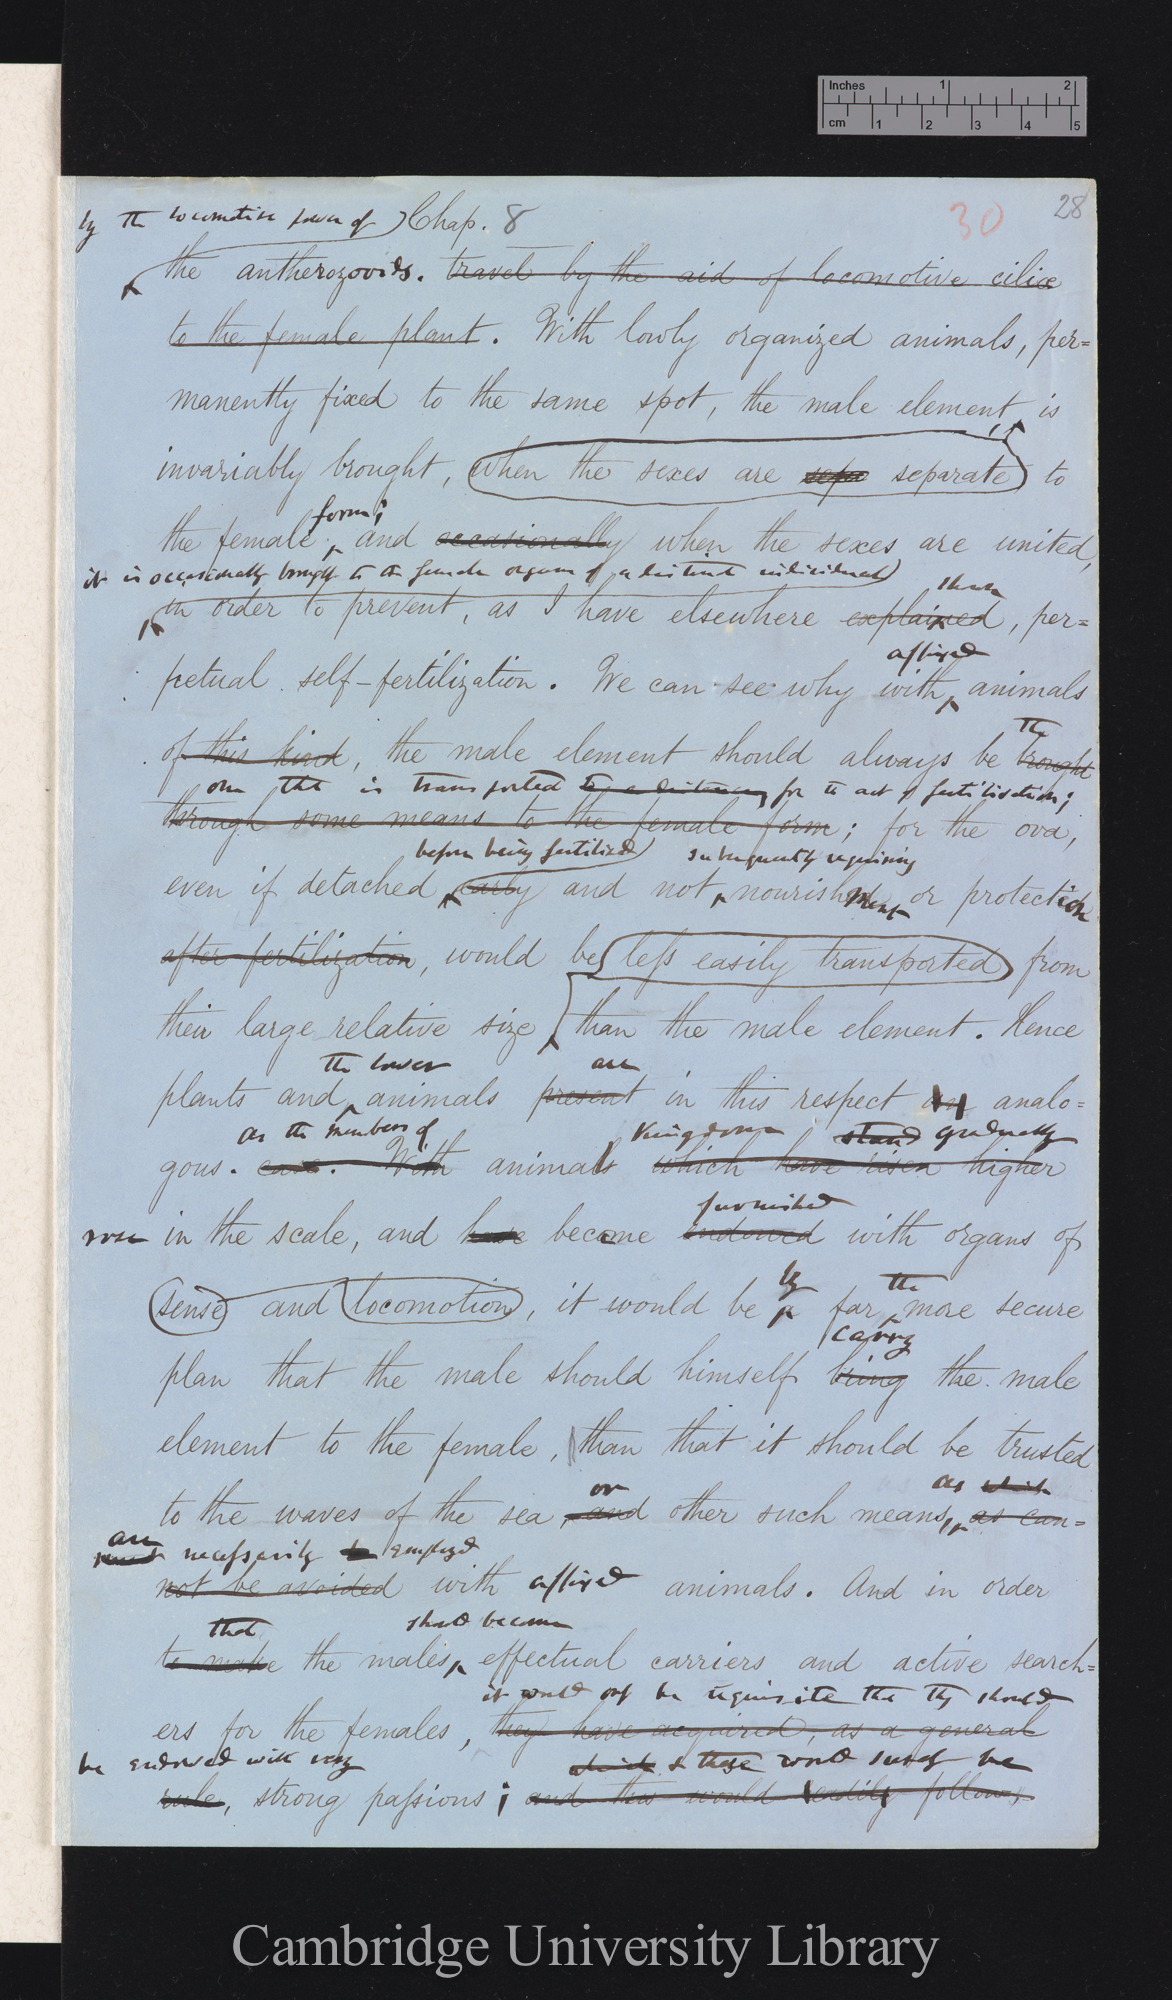 Inches 1 2
cm 1 2 3 4 5
by the locomotive power of Chap. 8 30 28
the antherozoids. travel by the aid of locomotive cilia
to the female plant. With lowly organized animals, per=
manently fixed to the same spot, the male element, is
invariably brought, when the sexes are sepa separate to
form;
the female; and occasionally when the sexes are united,
it is occasionally brought to the female organs of a distinct individual
shewn
in order to prevent, as I have elsewhere explained, per=
affixed
petual self-fertilization. We can see why with animals
the
of this kind, the male element should always be brought
one that is transported to a distance for the act of fertilisation;
through some means to the female form; for the ova,
before being fertilised subsequently requiring
even if detached early and not nourishment or protection
after fertilization, would be less easily transported from
their large relative size than the male element. Hence
the lower are
plants and animals present in this respect an analo=
as the members of Kingdom stand gradually
gous. case. With animals which have risen higher
furnished
rose in the scale, and have become endowed with organs of
by the
sense and locomotion, it would be a far more secure
carry
plan that the male should himself bring the male
element to the female, than that it should be trusted
or as which
to the waves of the sea, and other such means, as can=
are necessarily be employed
not be avoided with affixed animals. And in order
that should become
to make the males effectual carriers and active search=
it would be requisite that they should
ers for the females, they have acquired, as a general
be endowed with very which & these would surely be
rule, strong passions; and this would readily follow,
Cambridge University Library